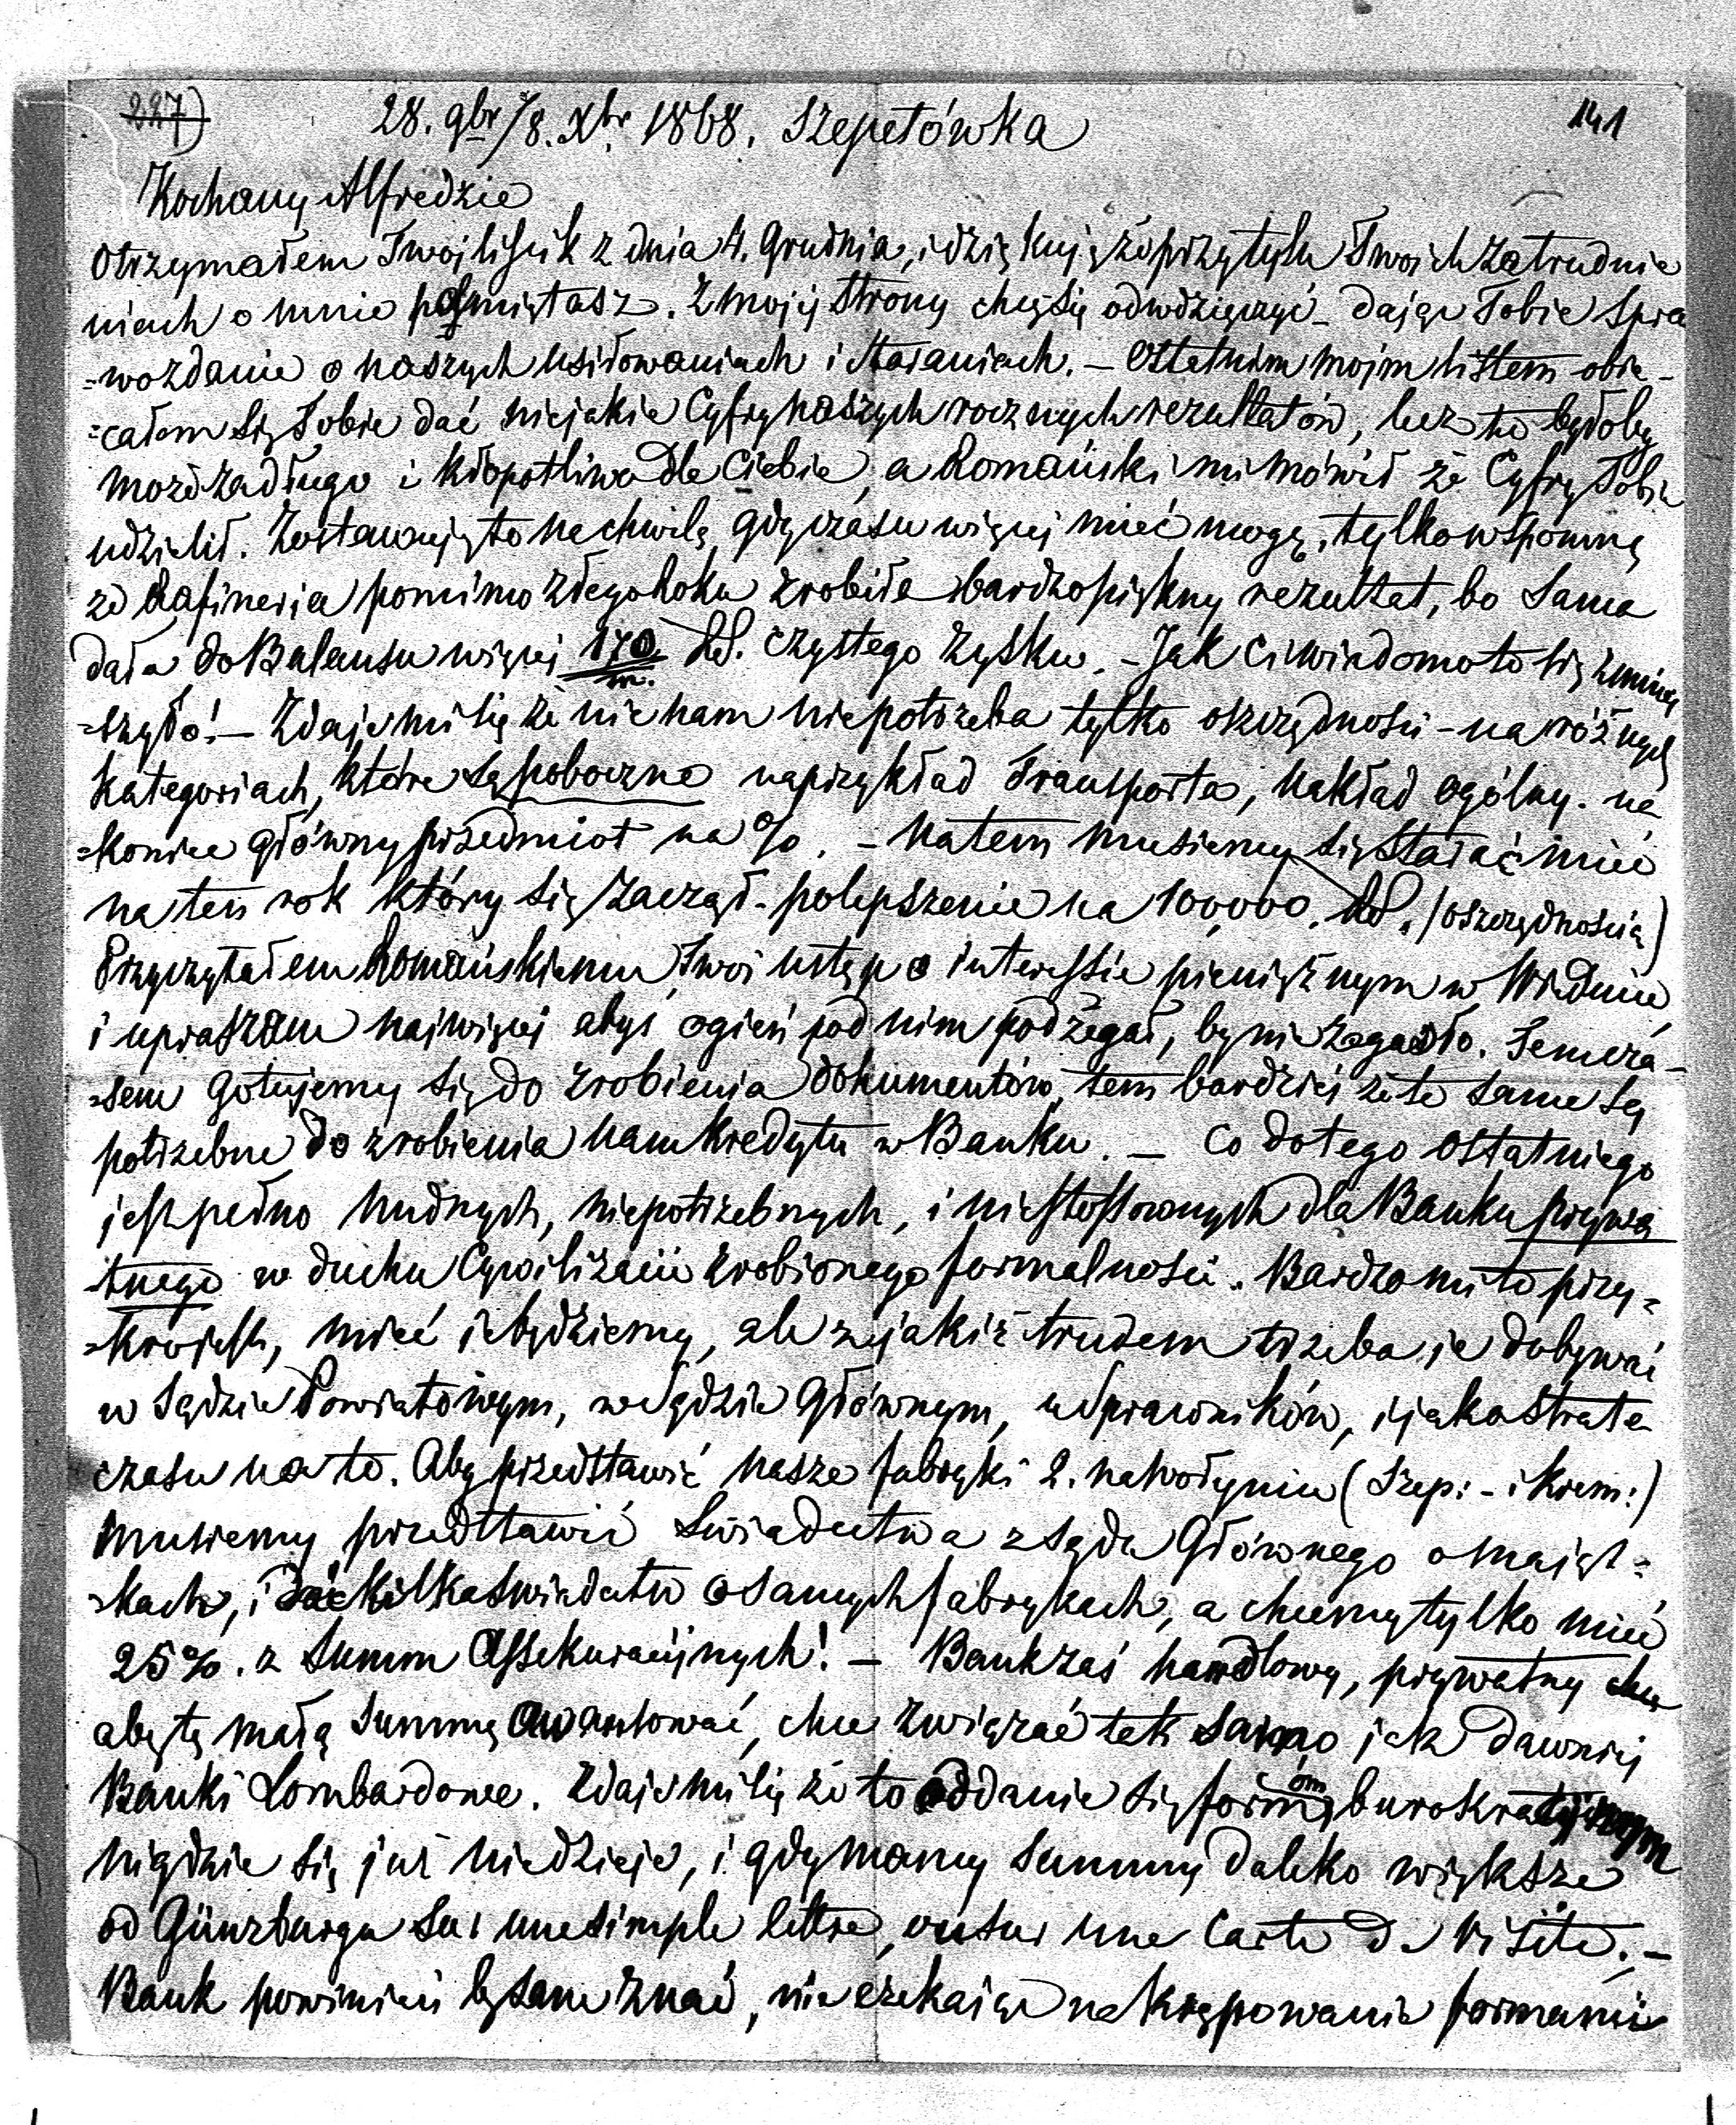 227) 28. 9br/8. Xbr. 1868. Szepetówka 141
Kochany Alfredzie
Otrzymałem Twoj liścik z dnia 4. Grudnia, i dziękuję że przy tylu Twoich zatrudnie
niach o mnie pamiętasz. Z mojej strony chcę się odwdzięczyć – dając Tobie spra
=wozdanie o naszych usiłowaniach i staraniach. – Ostatnim mojm listem obie-
=całem się Tobie dać niejakie Cyfry naszych rocznych rezultatów, lecz to byłoby
może za długo i kłopotliwe dla Ciebie, a Romański mi mówił że Cyfry Tobie
udzielił. Zostawuję to na chwilę, gdy czasu więcej mieć mogę, tylko wspomnę
że Rafineria pomimo złego Roku zrobiła bardzo piękny rezultat, bo sama
dała do Balansu więcej 170 m. Rs. czystego zysku. – Jak Ci wiadomo to się zmniej
=szyło! – Zdaje mi się że nic nam niepotrzeba tylko oszczędności – na różnych
Kategoriach, które są poboczne naprzykład Transporta, Nakład ogólny. na
=koniec główny przedmiot na %. – Na tem musiemy się starać mieć
na ten rok który się zaczął – polepszenie na 100,000. Rs. /oszczędnością)
Przyczytałem Romańskiemu Twoi ustęp o interessie pieniężnym w Wiedniu,
i upraszam najwięcej abyś ogień pod nim podżegał, by nie zagasło. Temcza-
=sem gotujemy się do zrobienia dokumentów, tem bardziéj że te same są
potrzebne do zrobienia nam kredytu w Banku. – Co do tego ostatniego
jest pełno nudnych, niepotrzebnych, i niestossownych dla Banku prywa
=tnego w duchu Cywilizacii zrobionego formalności. Bardzo mi to przy=
=kro jest, mieć je będziemy, ale z jakiż trudem trzeba je dobywać
w Sądzie Powiatowym, w Sądzie Głównym, u Sprawników, i jaka strata
czasu na to. Aby przedstawić nasze fabryki 2. na Wołyniu (Szep: – i Krem:)
musiemy przedstawić Swiadectwa z Sądu Głównego o mająt=
=kach, i dać kilka swiadectw o samych fabrykach, a chcemy tylko mieć
25%. z Summ Assekuracijnych! – Bank zaś handlowy, prywatny chcę
aby tę małą Summę awansować, chce związać tak samo jak dawniej
Banki Lombardowe. Zdaje mi się że to oddanie się formom burokratijnym
nigdzie się już niedzieje, i gdy mamy summy daleko większe
od Günzburga sur une simple lettre, ou sur une Carte de Visite. –
Bank powinien by same znać, nie czekając na krępowanie formami